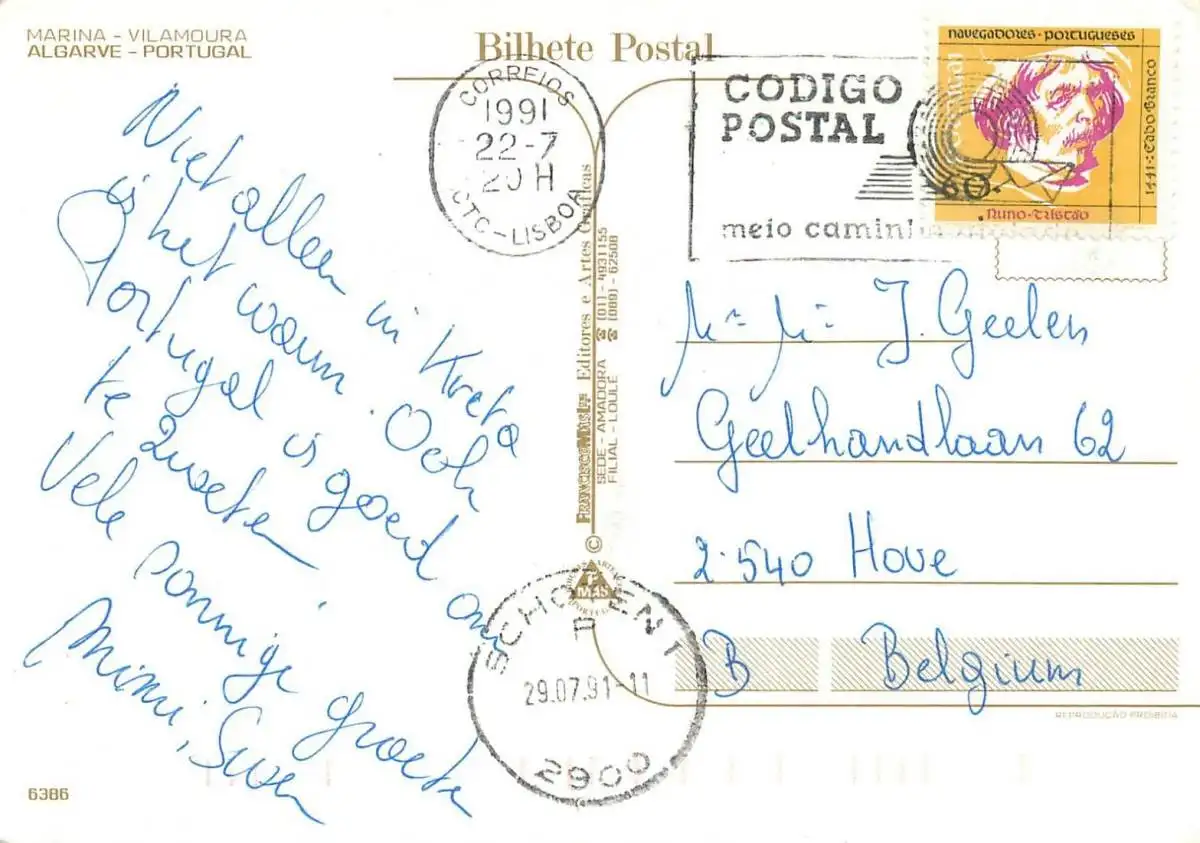 MARINA - VILAMOURA
ALGARVE - PORTUGAL
Bilhete Postal
CORREIOS
1991
22-7
20 H
CTC-LISBOA
CODIGO
POSTAL
meio caminho
NAVEGADORES · PORTUGUESES
1441: Cabo Branco
60.
Nuno · Tristão
Niet alleen in Kreta
is het warm. Och
Portugal is goed om
te zweten.
Vele zonnige groeten
Mimi, Swen
FRANCISCO MAS, Lda Editores e Artes Gráficas
SEDE - AMADORA ☎ (01) - 4931155
FILIAL - LOULÉ ☎ (089) - 62508
©
MAS
Mr Mr J. Geelen
Geelhandlaan 62
2.540 Hove
B Belgium
REPRODUÇÃO PROIBIDA
SCHOTEN 1
29.07.91-11
2900
6386